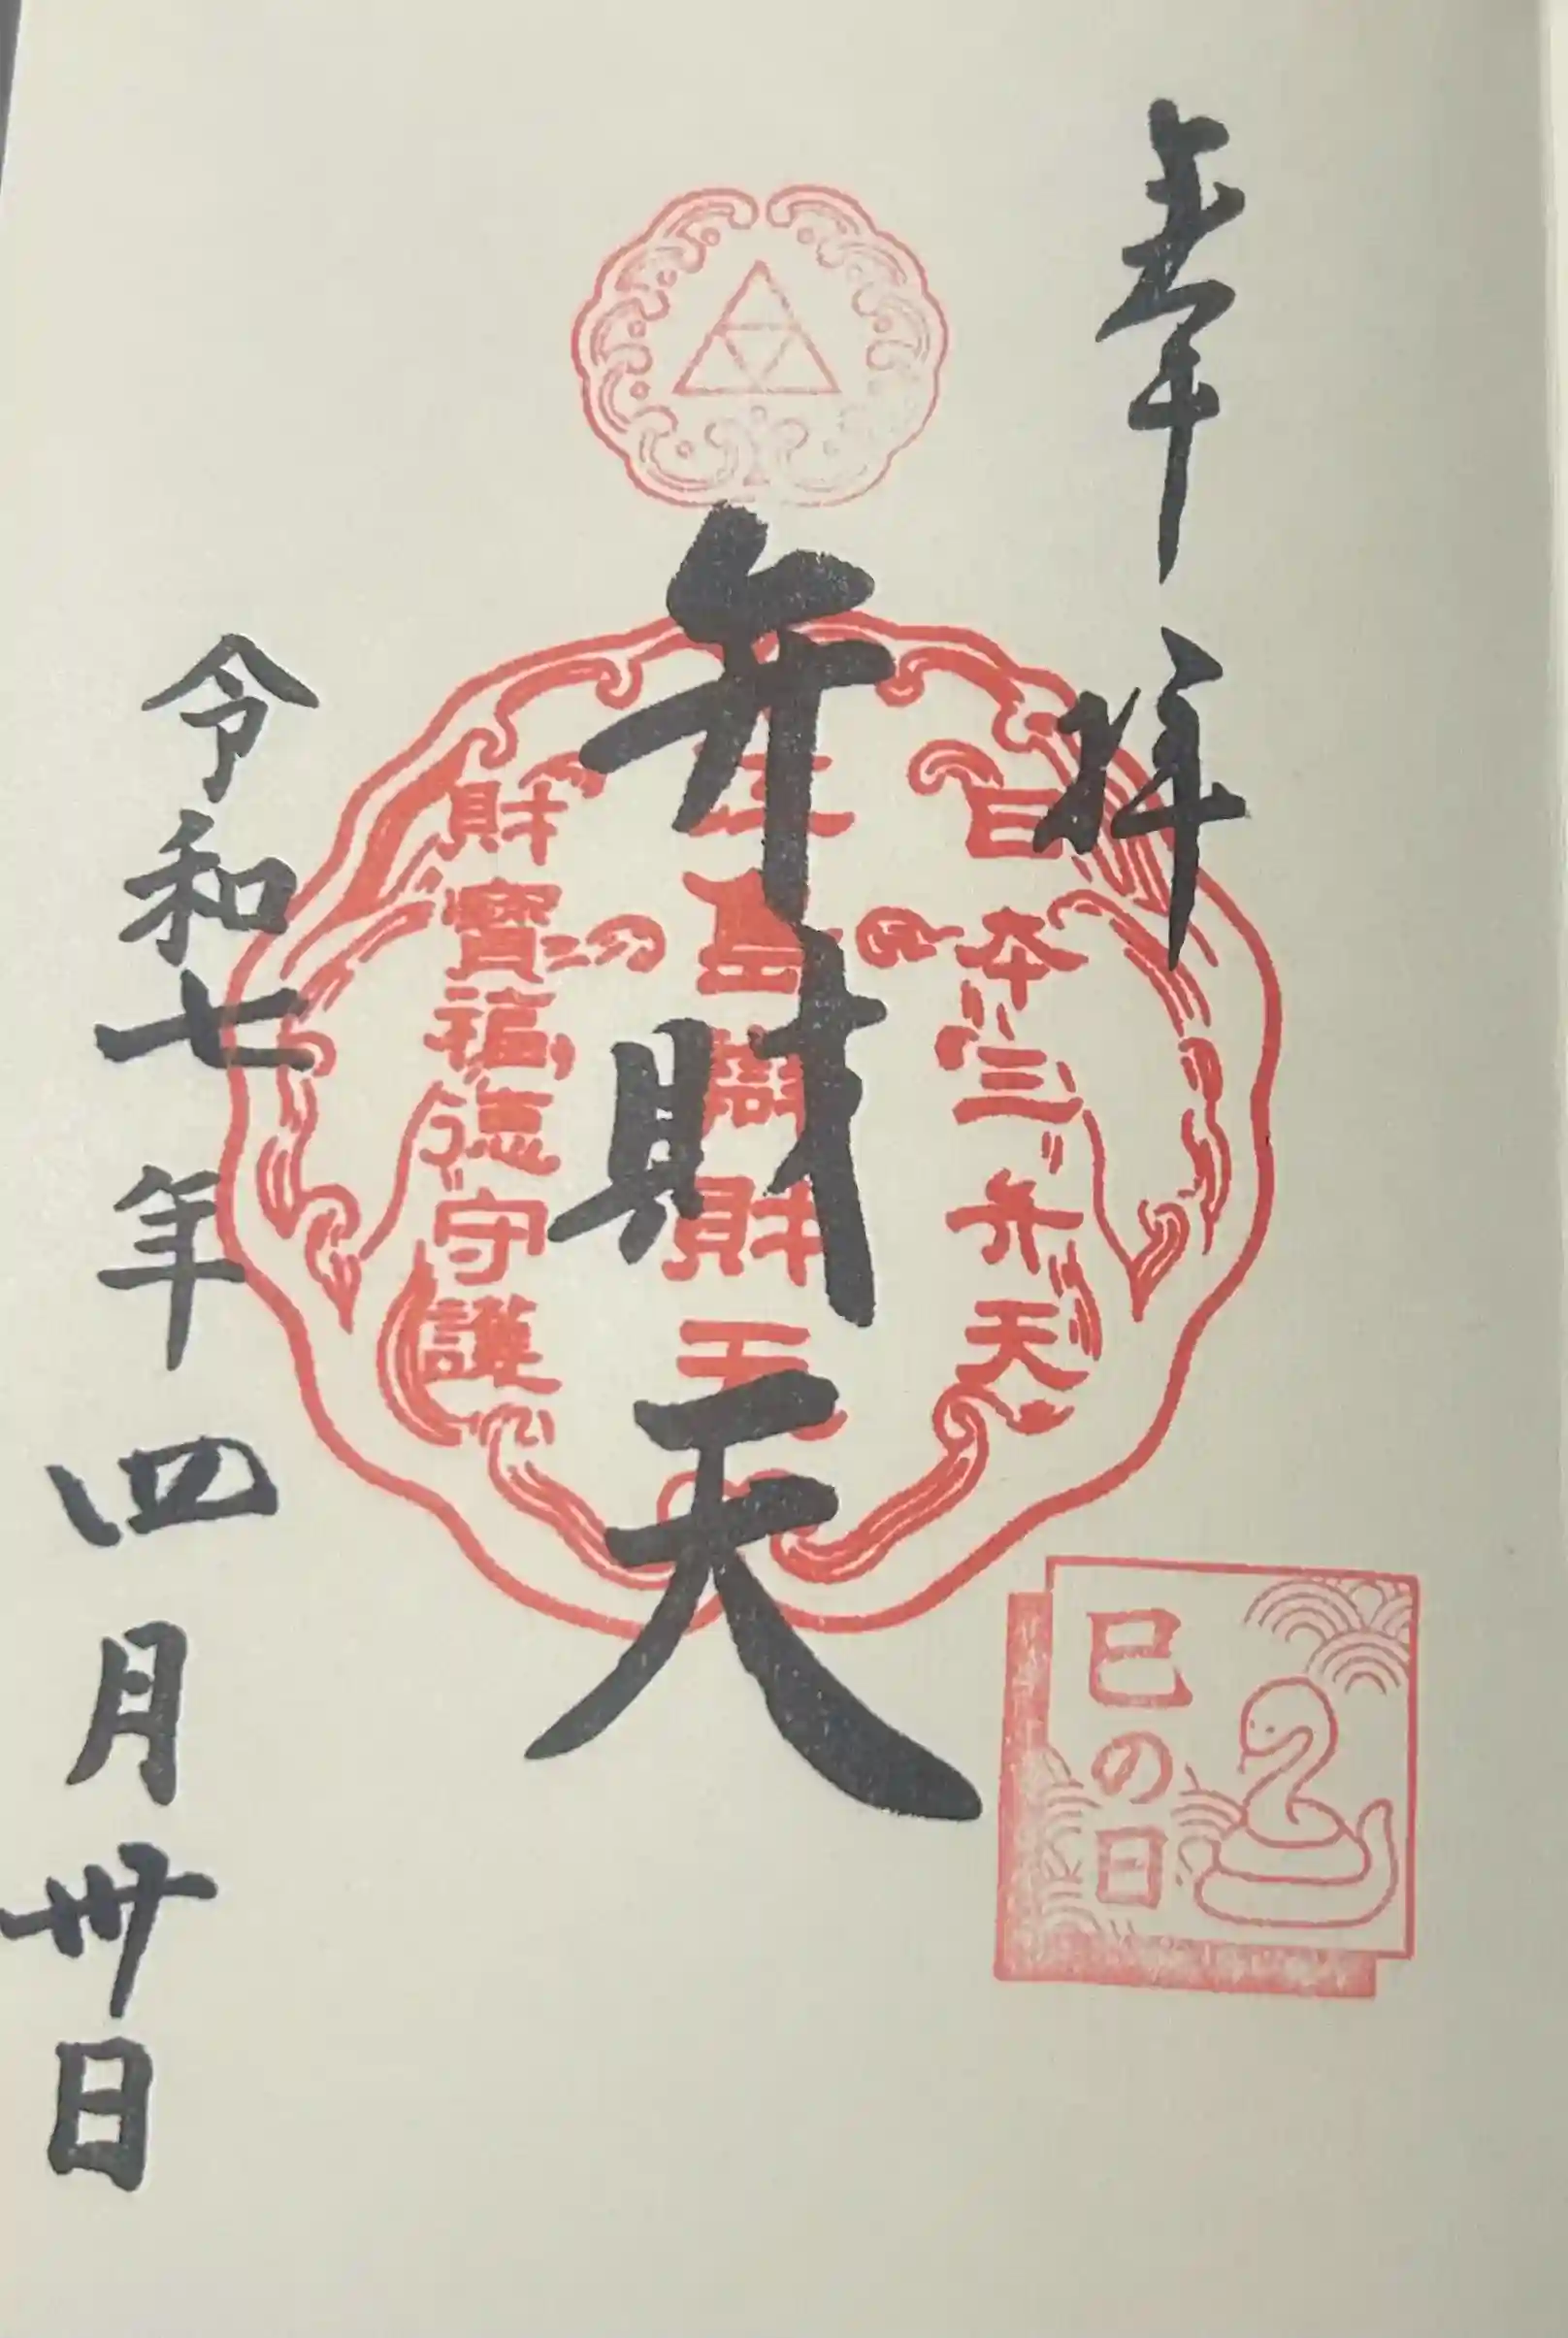 奉拝
日本三弁天
江島辯財天
財寶福徳守護
弁財天
巳の日
令和七年四月卅日